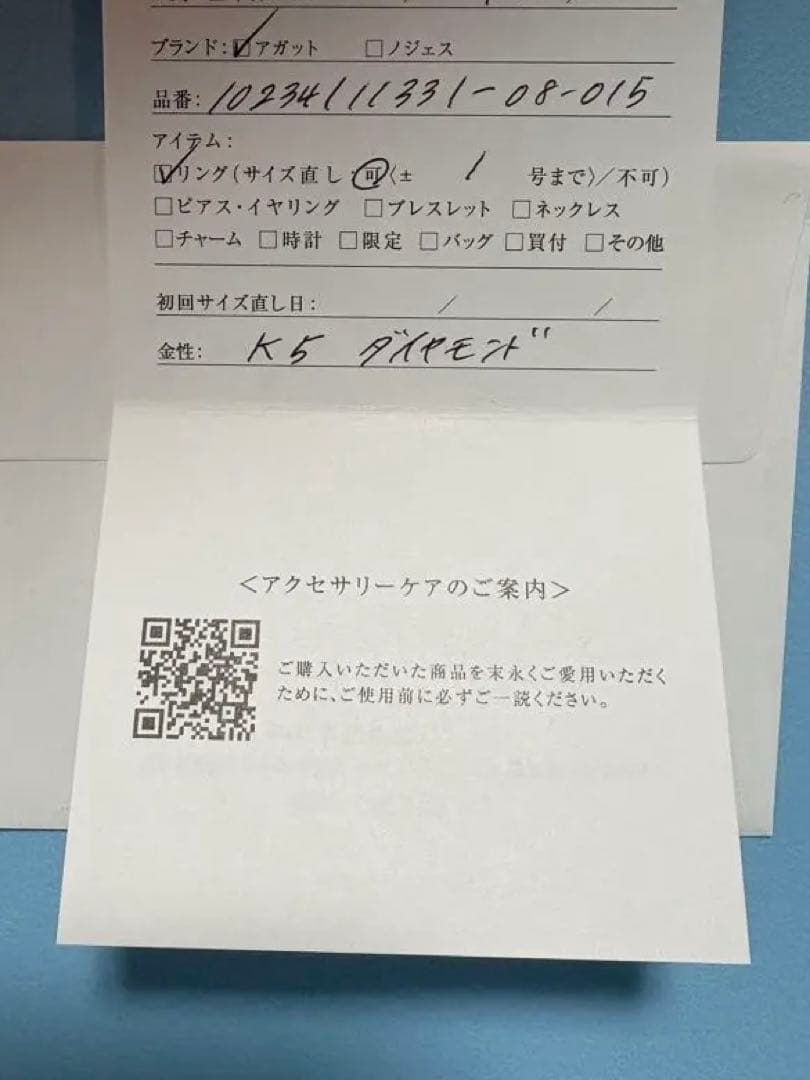 ブランド:☑アガット □ノジェス
品番: 10234111331-08-015
アイテム:
☑リング(サイズ直し 可〈± 1 号まで〉/不可)
□ピアス・イヤリング □ブレスレット □ネックレス
□チャーム □時計 □限定 □バッグ □買付 □その他
初回サイズ直し日: / /
金性: K5 ダイヤモンド
<アクセサリーケアのご案内>
ご購入いただいた商品を末永くご愛用いただく
ために、ご使用前に必ずご一読ください。